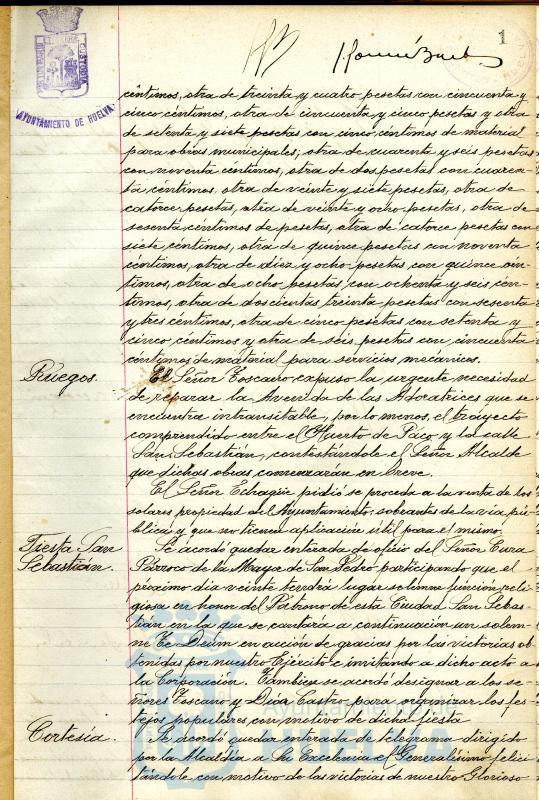 1
AYUNTAMIENTO DE HUELVA
céntimos, otra de treinta y cuatro pesetas con cincuenta y
cinco céntimos, otra de cincuenta y cinco pesetas y otra
de setenta y siete pesetas con cinco céntimos de material
para obras municipales; otra de cuarenta y seis pesetas
con noventa céntimos, otra de dos pesetas con cuaren-
ta céntimos, otra de veinte y siete pesetas, otra de
catorce pesetas, otra de veinte y ocho pesetas, otra de
sesenta céntimos de pesetas, otra de catorce pesetas con
siete céntimos, otra de quince pesetas con noventa
céntimos, otra de diez y ocho pesetas con quince cén-
timos, otra de ocho pesetas con ochenta y seis cén-
timos, otra de doscientas treinta pesetas con sesenta
y tres céntimos, otra de cinco pesetas con setenta y
cinco céntimos y otra de seis pesetas con cincuenta
céntimos de material para servicios mecánicos.
Ruegos.
El Señor Toscano expuso la urgente necesidad
de reparar la Avenida de las Adoratrices que se
encuentra intransitable, por lo menos, el trayecto
comprendido entre el Huerto de Paco y la calle
San Sebastián, contestándole el Señor Alcalde
que dichas obras comenzarán en breve.
El Señor Echagüe pidió se proceda a la venta de los
solares propiedad del Ayuntamiento, sobrantes de la vía pú-
blica y que no tienen aplicación útil para el mismo.
Fiesta San
Sebastián.
Se acordó quedar enterada de oficio del Señor Cura
Párroco de la Mayor de San Pedro participando que el
próximo día veinte tendrá lugar solemne función reli-
giosa en honor del Patrono de esta Ciudad San Sebas-
tián en la que se cantará a continuación un solem-
ne Te Deum en acción de gracias por las victorias ob-
tenidas por nuestro Ejército e invitando a dicho acto a
la Corporación. También se acordó designar a los se-
ñores Toscano y Díaz Castro para organizar los fes-
tejos populares con motivo de dicha fiesta
Cortesía.
Se acordó quedar enterada de telegrama dirigido
por la Alcaldía a Su Excelencia el Generalísimo felici-
tándole con motivo de las victorias de nuestro Glorioso
Ayuntamiento de
HUELVA